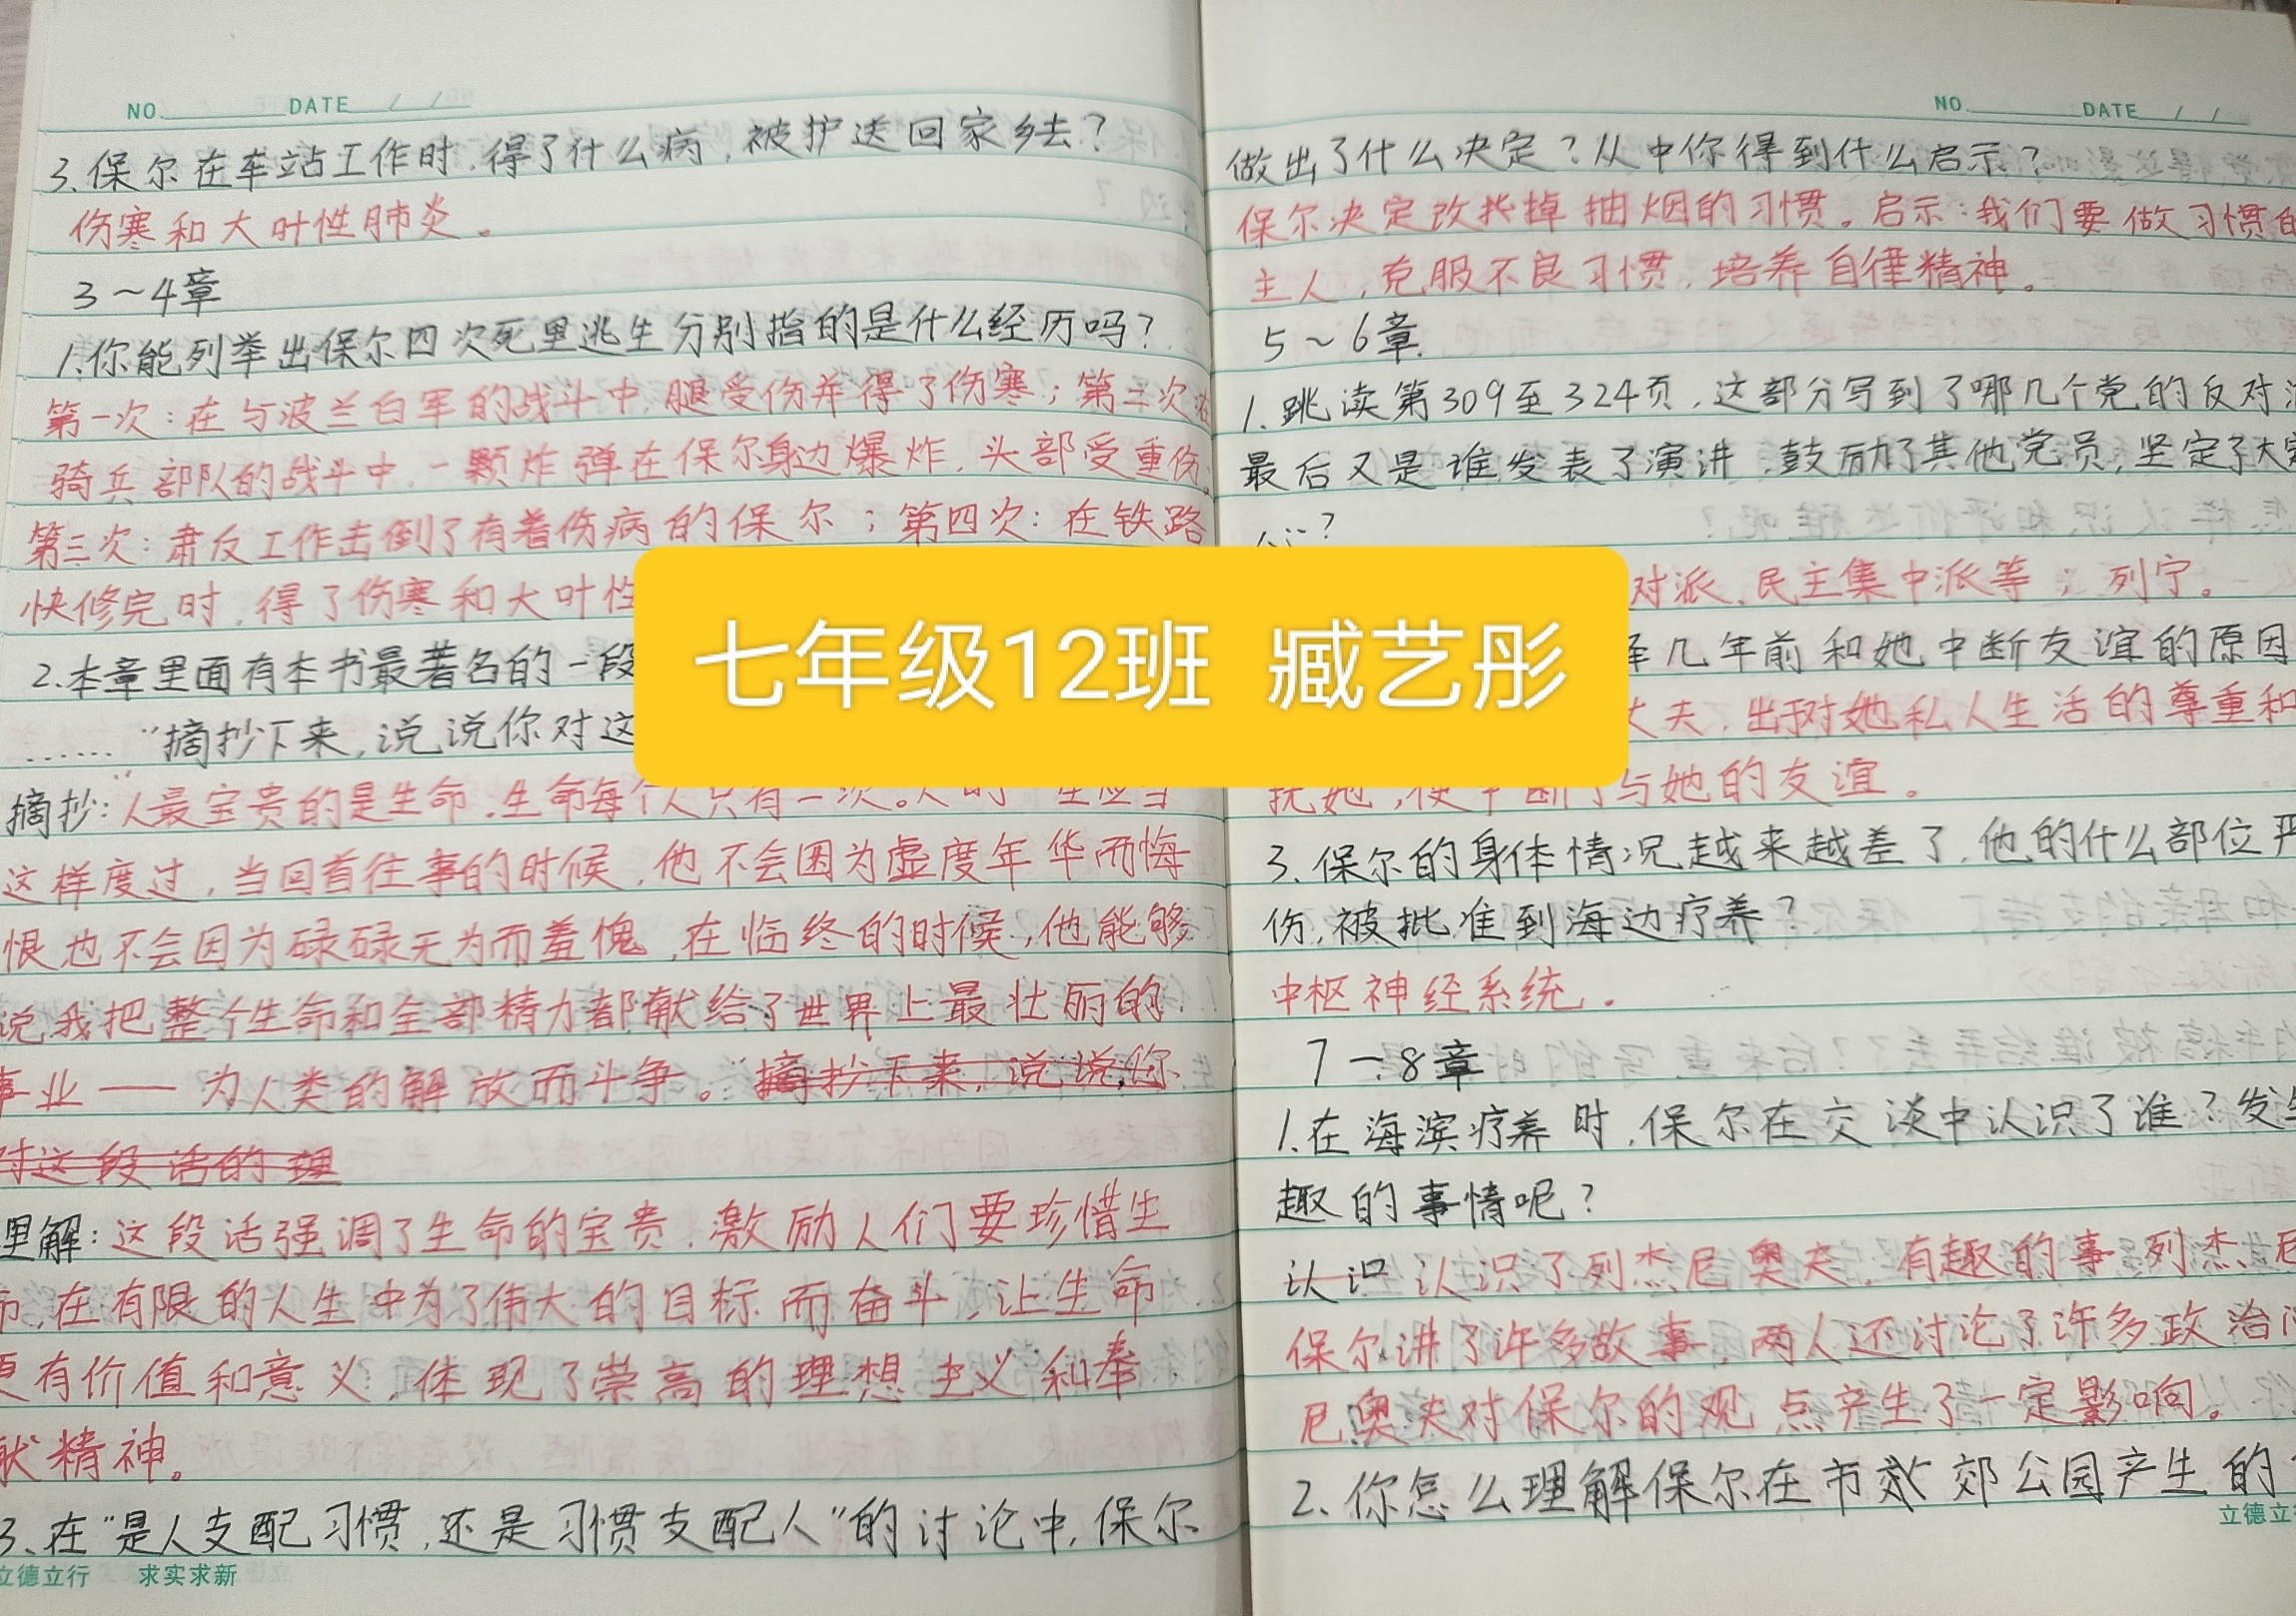 NO. DATE / /
3.保尔在车站工作时,得了什么病,被护送回家乡去?
伤寒和大叶性肺炎。
3～4章
1.你能列举出保尔四次死里逃生分别指的是什么经历吗?
第一次:在与波兰白军的战斗中,腿受伤并得了伤寒;第二次
骑兵部队的战斗中,一颗炸弹在保尔身边爆炸,头部受重伤
第三次:肃反工作击倒了有着伤病的保尔;第四次:在铁路
快修完时,得了伤寒和大叶性
2.本章里面有本书最著名的一段
......"摘抄下来,说说你对这
摘抄:"人最宝贵的是生命.生命每个人只有一次。人的一生应当
这样度过,当回首往事的时候,他不会因为虚度年华而悔
恨也不会因为碌碌无为而羞愧,在临终的时候,他能够
说,我把整个生命和全部精力都献给了世界上最壮丽的
事业——为人类的解放而斗争。"摘抄下来,说说你
对这段话的理
理解:这段话强调了生命的宝贵,激励人们要珍惜生
命,在有限的人生中为了伟大的目标而奋斗,让生命
更有价值和意义,体现了崇高的理想主义和奉
献精神。
3、在"是人支配习惯,还是习惯支配人"的讨论中,保尔
立德立行 求实求新
七年级12班 臧艺彤
NO. DATE / /
做出了什么决定?从中你得到什么启示?
保尔决定改掉抽烟的习惯。启示:我们要做习惯的
主人,克服不良习惯,培养自律精神。
5～6章
1.跳读第309至324页,这部分写到了哪几个党的反对派
最后又是谁发表了演讲,鼓励了其他党员,坚定了大家
?
对派、民主集中派等;列宁。
几年前和她中断友谊的原因
丈夫,出于对她私人生活的尊重和
她,便中断了与她的友谊。
3.保尔的身体情况越来越差了,他的什么部位严
伤,被批准到海边疗养?
中枢神经系统。
7一8章
1.在海滨疗养时,保尔在交谈中认识了谁?发生
趣的事情呢?
认识 认识了列杰尼奥夫,有趣的事:列杰尼
保尔讲了许多故事,两人还讨论了许多政治
尼奥夫对保尔的观点产生了一定影响。
2.你怎么理解保尔在市郊公园产生的
立德立